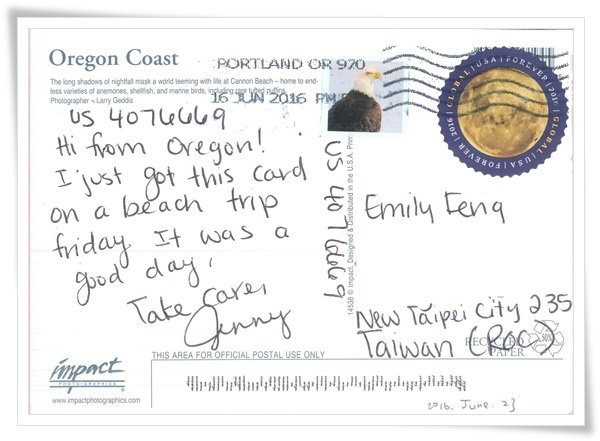 Oregon Coast
The long shadows of nightfall mask a world teeming with life at Cannon Beach – home to end-
less varieties of anemones, shellfish, and marine birds, including rare tufted puffins.
Photographer ~ Larry Geddis
PORTLAND OR 970
16 JUN 2016 PM
GLOBAL | USA | FOREVER | 2016 | GLOBAL | USA | FOREVER | 2016
US 4076669
Hi from Oregon!
I just got this card
on a beach trip
friday. It was a
good day.
Take care,
Jenny
US 4076669
14538 © Impact, Designed & Distributed in the U.S.A. Prin
Emily Feng
New Taipei City 235
Taiwan (ROC)
RECYCLED
PAPER
impact
PHOTOGRAPHICS
www.impactphotographics.com
THIS AREA FOR OFFICIAL POSTAL USE ONLY
2016. June. 23